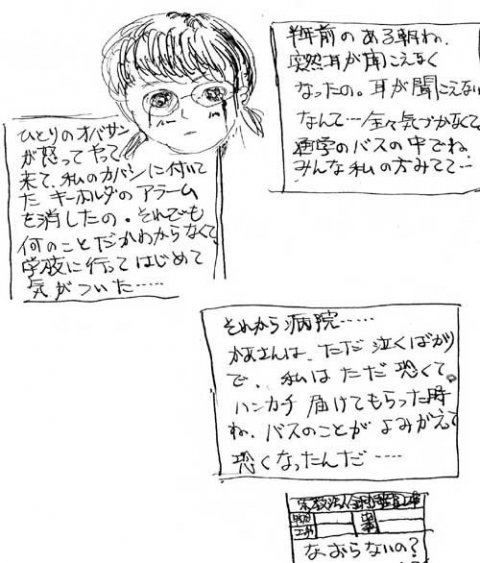 半年前のある朝ね、
突然耳が聞こえなく
なったの。耳が聞こえない
なんて…全々気づかなくて
通学のバスの中でね
みんな私の方みてて…
ひとりのオバサン
が怒ってやって
来て、私のカバンに付いて
た キーホルダのアラーム
を消したの。それでも
何のことだかわからなくて
学校に行ってはじめて
気がついた……
それから病院……
かあさんは、ただ泣くばかり
で、私はただ恐くて。
ハンカチ届けてもらった時
ね、バスのことがよみがえって
恐くなったんだ……
なおらないの?